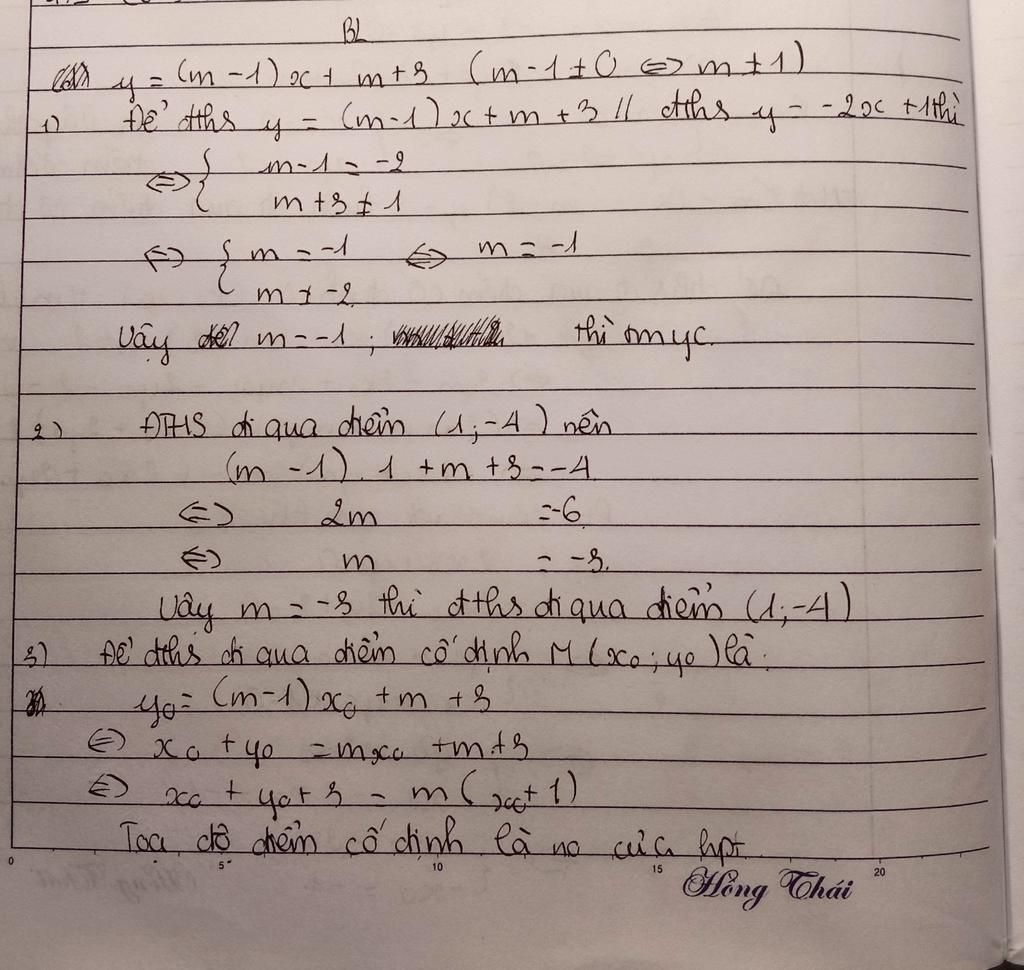 BL
y = (m-1)x + m+3 (m-1 ≠ 0 <=> m ≠ 1)
1) Để đths y = (m-1)x + m + 3 // đths y = -2x + 1 thì
<=> { m-1 = -2
m+3 ≠ 1
<=> { m = -1 <=> m = -1
m ≠ -2
Vậy m = -1 ; thì tmyc.
2) ĐTHS đi qua điểm (1;-4) nên
(m-1).1 + m + 3 = -4
<=> 2m = -6
<=> m = -3.
Vậy m = -3 thì đths đi qua điểm (1;-4)
3) Để đths đi qua điểm cố định M(x0; y0) là.
y0 = (m-1)x0 + m + 3
<=> x0 + y0 = mx0 + m + 3
<=> x0 + y0 + 3 = m(x0 + 1)
Toạ độ điểm cố định là no của hpt
0 5 10 15 20
Hồng Thái